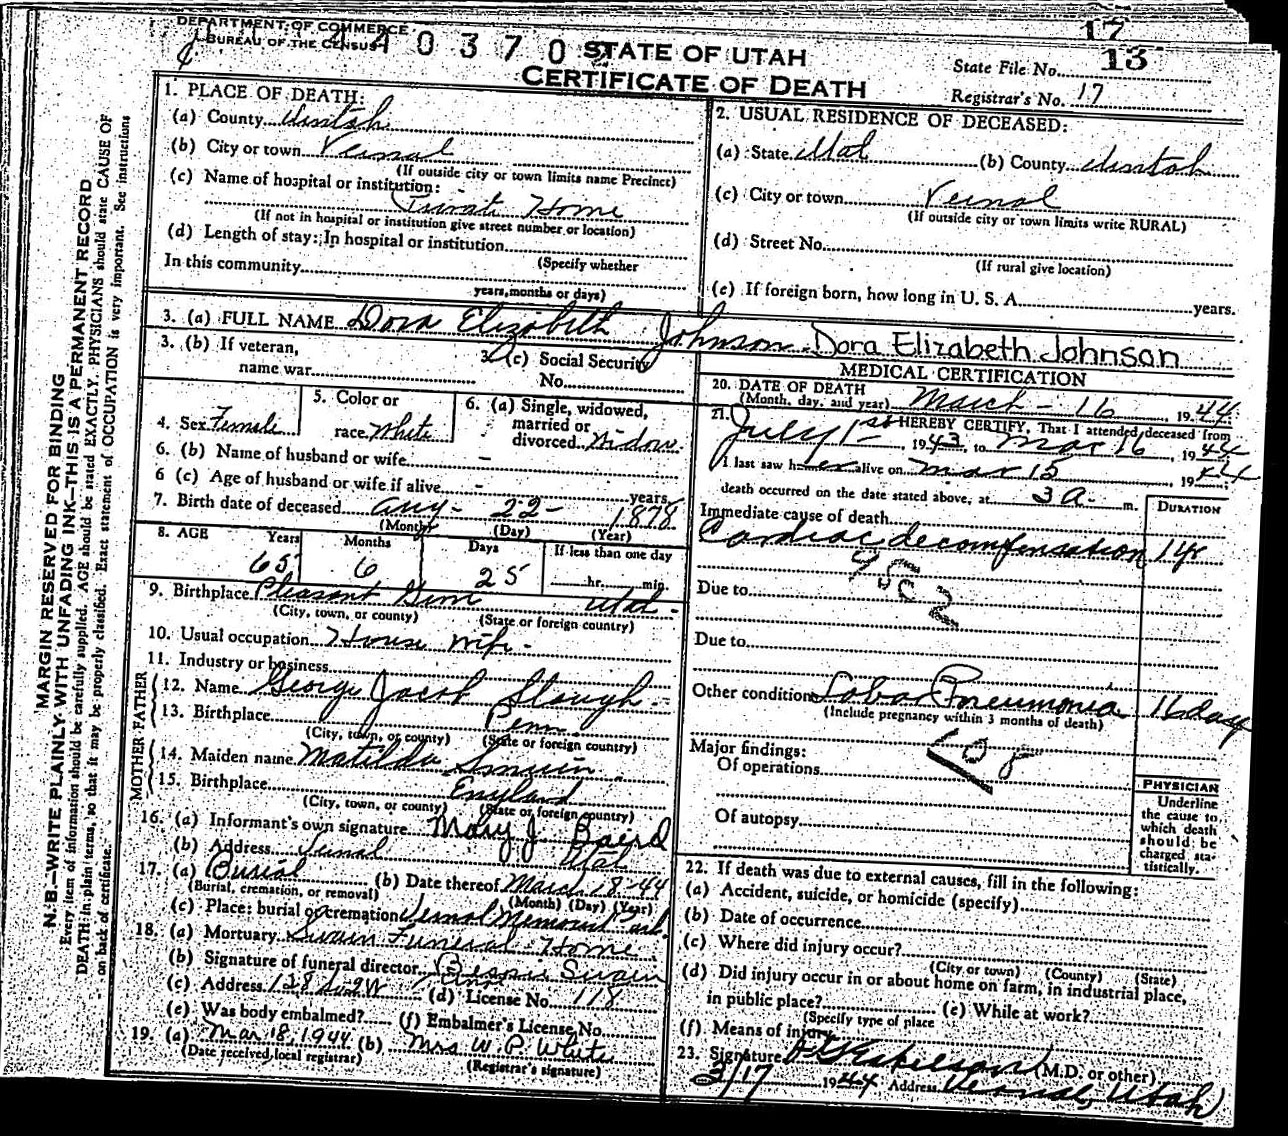 DEPARTMENT OF COMMERCE
BUREAU OF THE CENSUS
0 3 7 0
STATE OF UTAH
CERTIFICATE OF DEATH
17
State File No. 13
Registrar's No. 17
1. PLACE OF DEATH:
(a) County Uintah
(b) City or town Vernal
(If outside city or town limits name Precinct)
(c) Name of hospital or institution:
Private Home
(If not in hospital or institution give street number or location)
(d) Length of stay: In hospital or institution
(Specify whether
In this community
years, months or days)
2. USUAL RESIDENCE OF DECEASED:
(a) State Utah (b) County Uintah
(c) City or town Vernal
(If outside city or town limits write RURAL)
(d) Street No.
(If rural give location)
(e) If foreign born, how long in U. S. A. years.
3. (a) FULL NAME Dora Elizabeth Johnson Dora Elizabeth Johnson
3. (b) If veteran,
name war
3. (c) Social Security
No.
4. Sex Female
5. Color or
race White
6. (a) Single, widowed,
married or
divorced Widow
6. (b) Name of husband or wife -
6 (c) Age of husband or wife if alive - years
7. Birth date of deceased Aug - 22 - 1878
(Month) (Day) (Year)
8. AGE Years Months Days If less than one day
65 6 25 hr. min.
9. Birthplace Pleasant Utah
(City, town, or county) (State or foreign country)
10. Usual occupation House wife
11. Industry or business
FATHER
12. Name George Jacob Slaugh
13. Birthplace Penn
(City, town, or county) (State or foreign country)
MOTHER
14. Maiden name Matilda
15. Birthplace England
(City, town, or county) (State or foreign country)
16. (a) Informant's own signature Mary J. Baird
(b) Address Vernal Utah
17. (a) Burial (b) Date thereof March 18-44
(Burial, cremation, or removal) (Month) (Day) (Year)
(c) Place: burial or cremation Vernal Memorial Park
18. (a) Mortuary Swain Funeral Home
(b) Signature of funeral director Swain
(c) Address 128 So 2 W (d) License No. 118
(e) Was body embalmed? (f) Embalmer's License No.
19. (a) Mar 18, 1944 (b) Mrs W. P. White
(Date received local registrar) (Registrar's signature)
MEDICAL CERTIFICATION
20. DATE OF DEATH
(Month, day, and year) March - 16 1944
21. I HEREBY CERTIFY, That I attended deceased from
July 1st 1943, to Mar 16, 1944
I last saw her alive on Mar 15 1944
death occurred on the date stated above, at 3 a. m.
DURATION
Immediate cause of death
Cardiac decompensation 1 yr
Due to
Due to
Other conditions Lobar Pneumonia 11 day
(Include pregnancy within 3 months of death)
108
Major findings:
Of operations
Of autopsy
PHYSICIAN
Underline
the cause to
which death
should be
charged sta-
tistically.
22. If death was due to external causes, fill in the following:
(a) Accident, suicide, or homicide (specify)
(b) Date of occurrence
(c) Where did injury occur?
(City or town) (County) (State)
(d) Did injury occur in or about home on farm, in industrial place,
in public place? (e) While at work?
(Specify type of place
(f) Means of injury
23. Signature (M.D. or other)
3/17 1944 Address Vernal, Utah
MARGIN RESERVED FOR BINDING
N.B.—WRITE PLAINLY WITH UNFADING INK—THIS IS A PERMANENT RECORD
Every item of information should be carefully supplied. AGE should be stated EXACTLY. PHYSICIANS should state CAUSE OF
DEATH in plain terms, so that it may be properly classified. Exact statement of OCCUPATION is very important. See instructions
on back of certificate.